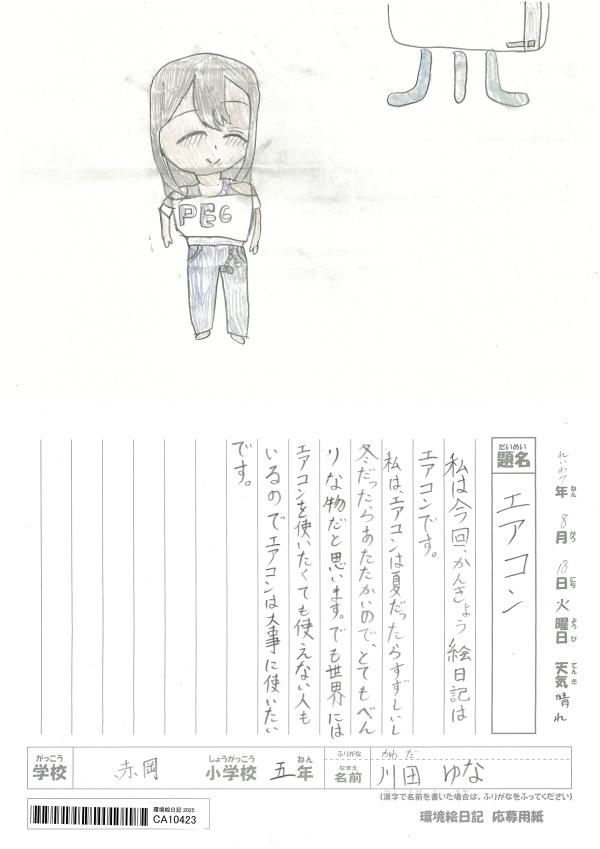 PEG
れいわ7年 8月 18日 火曜日 天気 晴れ
ねん がつ にち ようび てんき
だいめい
題名 エアコン
私は今回、かんきょう絵日記は
エアコンです。
私は、エアコンは夏だったらすずしいし
冬だったらあたたかいので、とてもべん
りな物だと思います。でも世界には
エアコンを使いたくても使えない人も
いるのでエアコンは大事に使いたい
です。
がっこう しょうがっこう ねん
学校 赤岡 小学校 五年
ふりがな かわだ
なまえ
名前 川田 ゆな
(漢字で名前を書いた場合は、ふりがなをふってください)
環境絵日記 2025
CA10423
環境絵日記 応募用紙